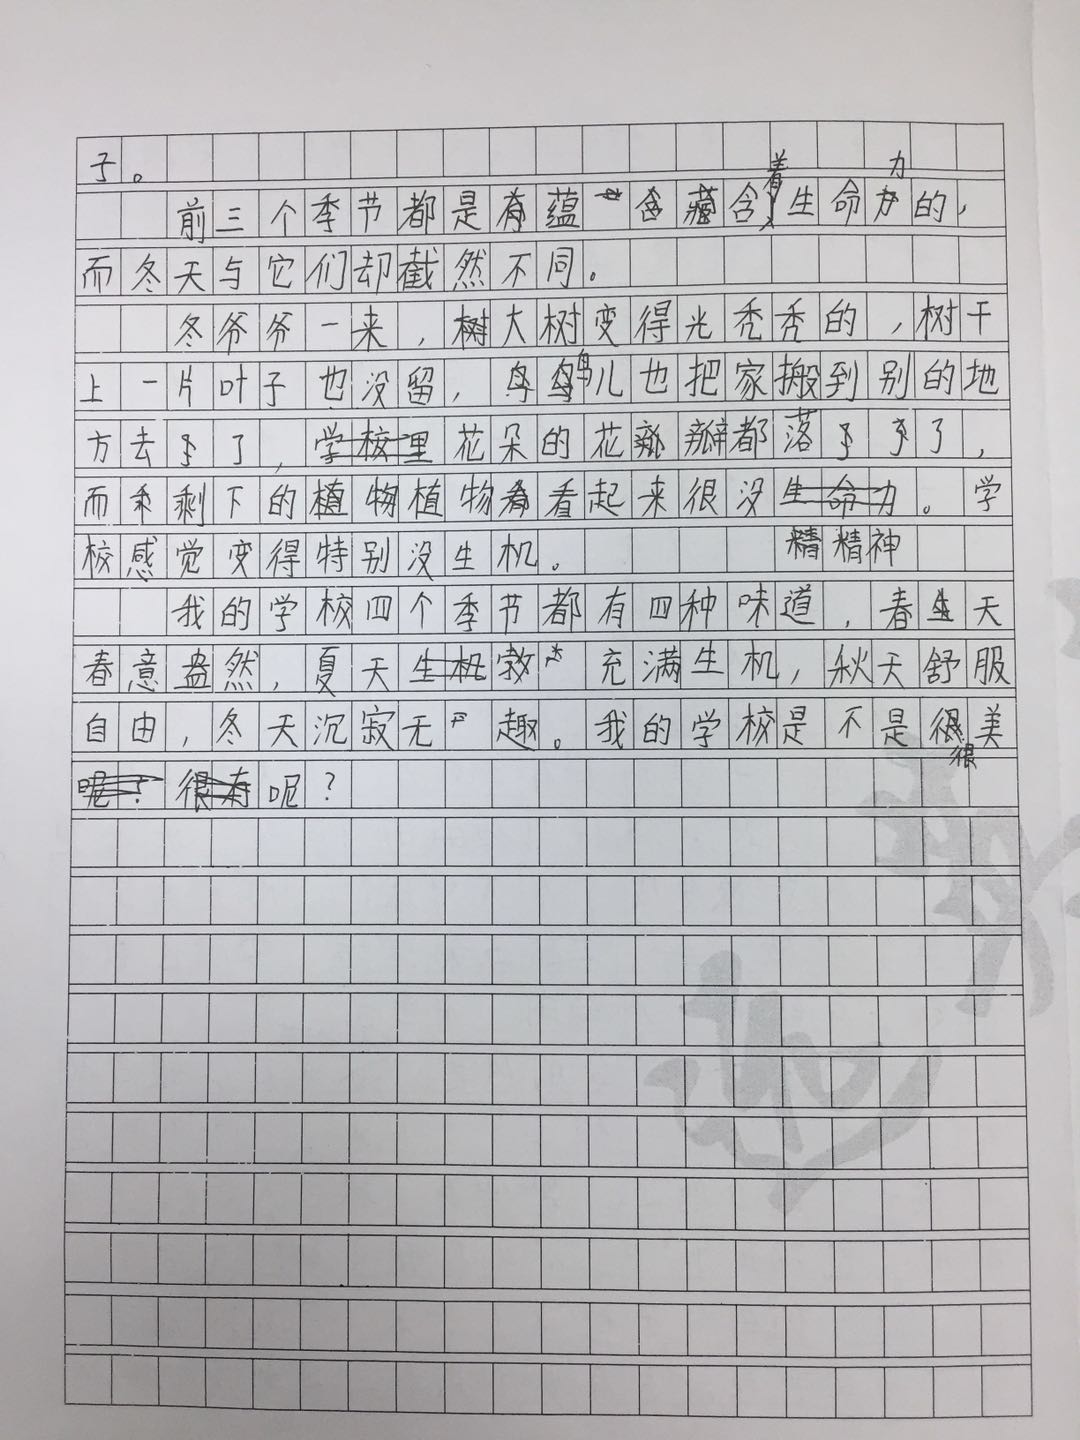 子。
前三个季节都是蕴含着生命力的，
而冬天与它们却截然不同。
冬爷爷一来，大树变得光秃秃的，树干
上一片叶子也没留，鸟儿也把家搬到别的地
方去了，花朵的花瓣都落了，
而剩下的植物看起来很没精神。学
校感觉变得特别没生机。
我的学校四个季节都有四种味道，春天
春意盎然，夏天充满生机，秋天舒服
自由，冬天沉寂无趣。我的学校是不是很美
呢？